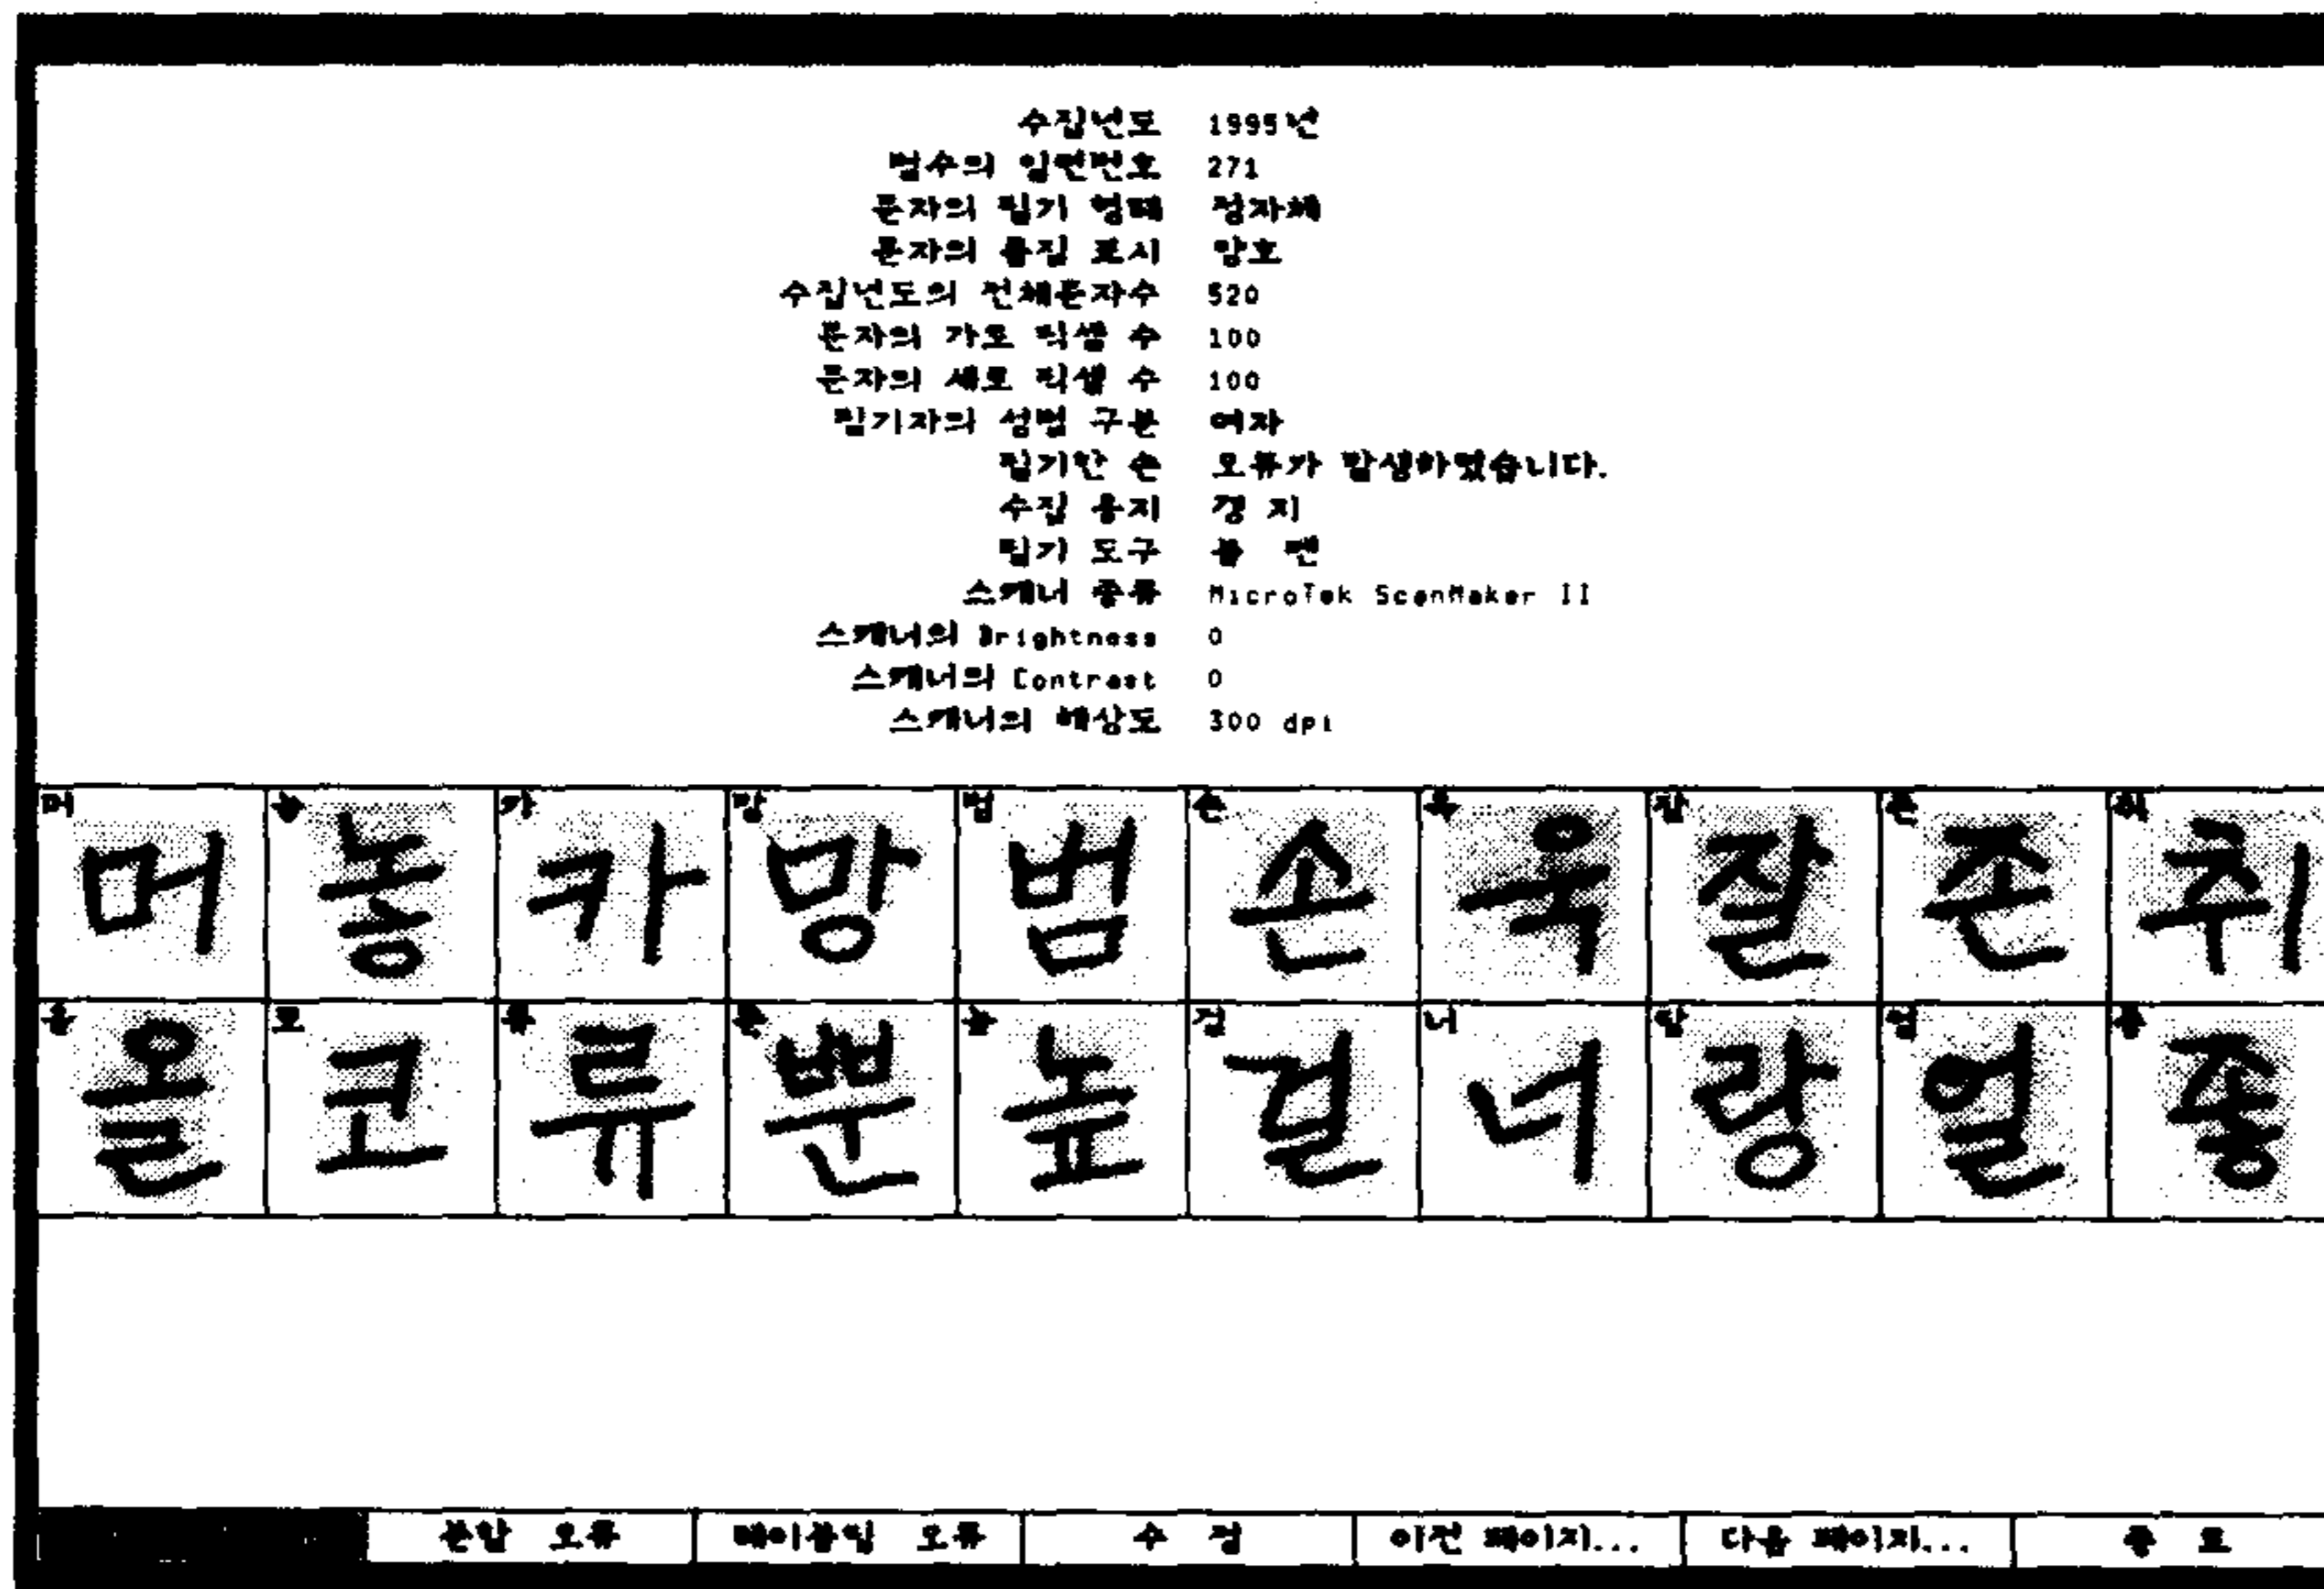 수집년도 1995년
범주의 일련번호 271
문자의 필기 형태 정자체
문자의 품질 표시 양호
수집년도의 전체문자수 520
문자의 가로 픽셀 수 100
문자의 세로 픽셀 수 100
필기자의 성별 구분 여자
필기한 손 오류가 발생하였습니다.
수집 용지 갱 지
필기 도구 볼 펜
스캐너 종류 MicroTek ScanMaker II
스캐너의 Brightness 0
스캐너의 Contrast 0
스캐너의 해상도 300 dpi
머 농 카 망 범 손 욱 잘 존 취
머 농 카 망 범 손 욱 잘 존 취
올 코 류 뿐 높 걸 너 랑 얼 좋
올 코 류 뿐 높 걸 너 랑 얼 좋
분할 오류 레이블링 오류 수 정 이전 페이지... 다음 페이지... 종 료